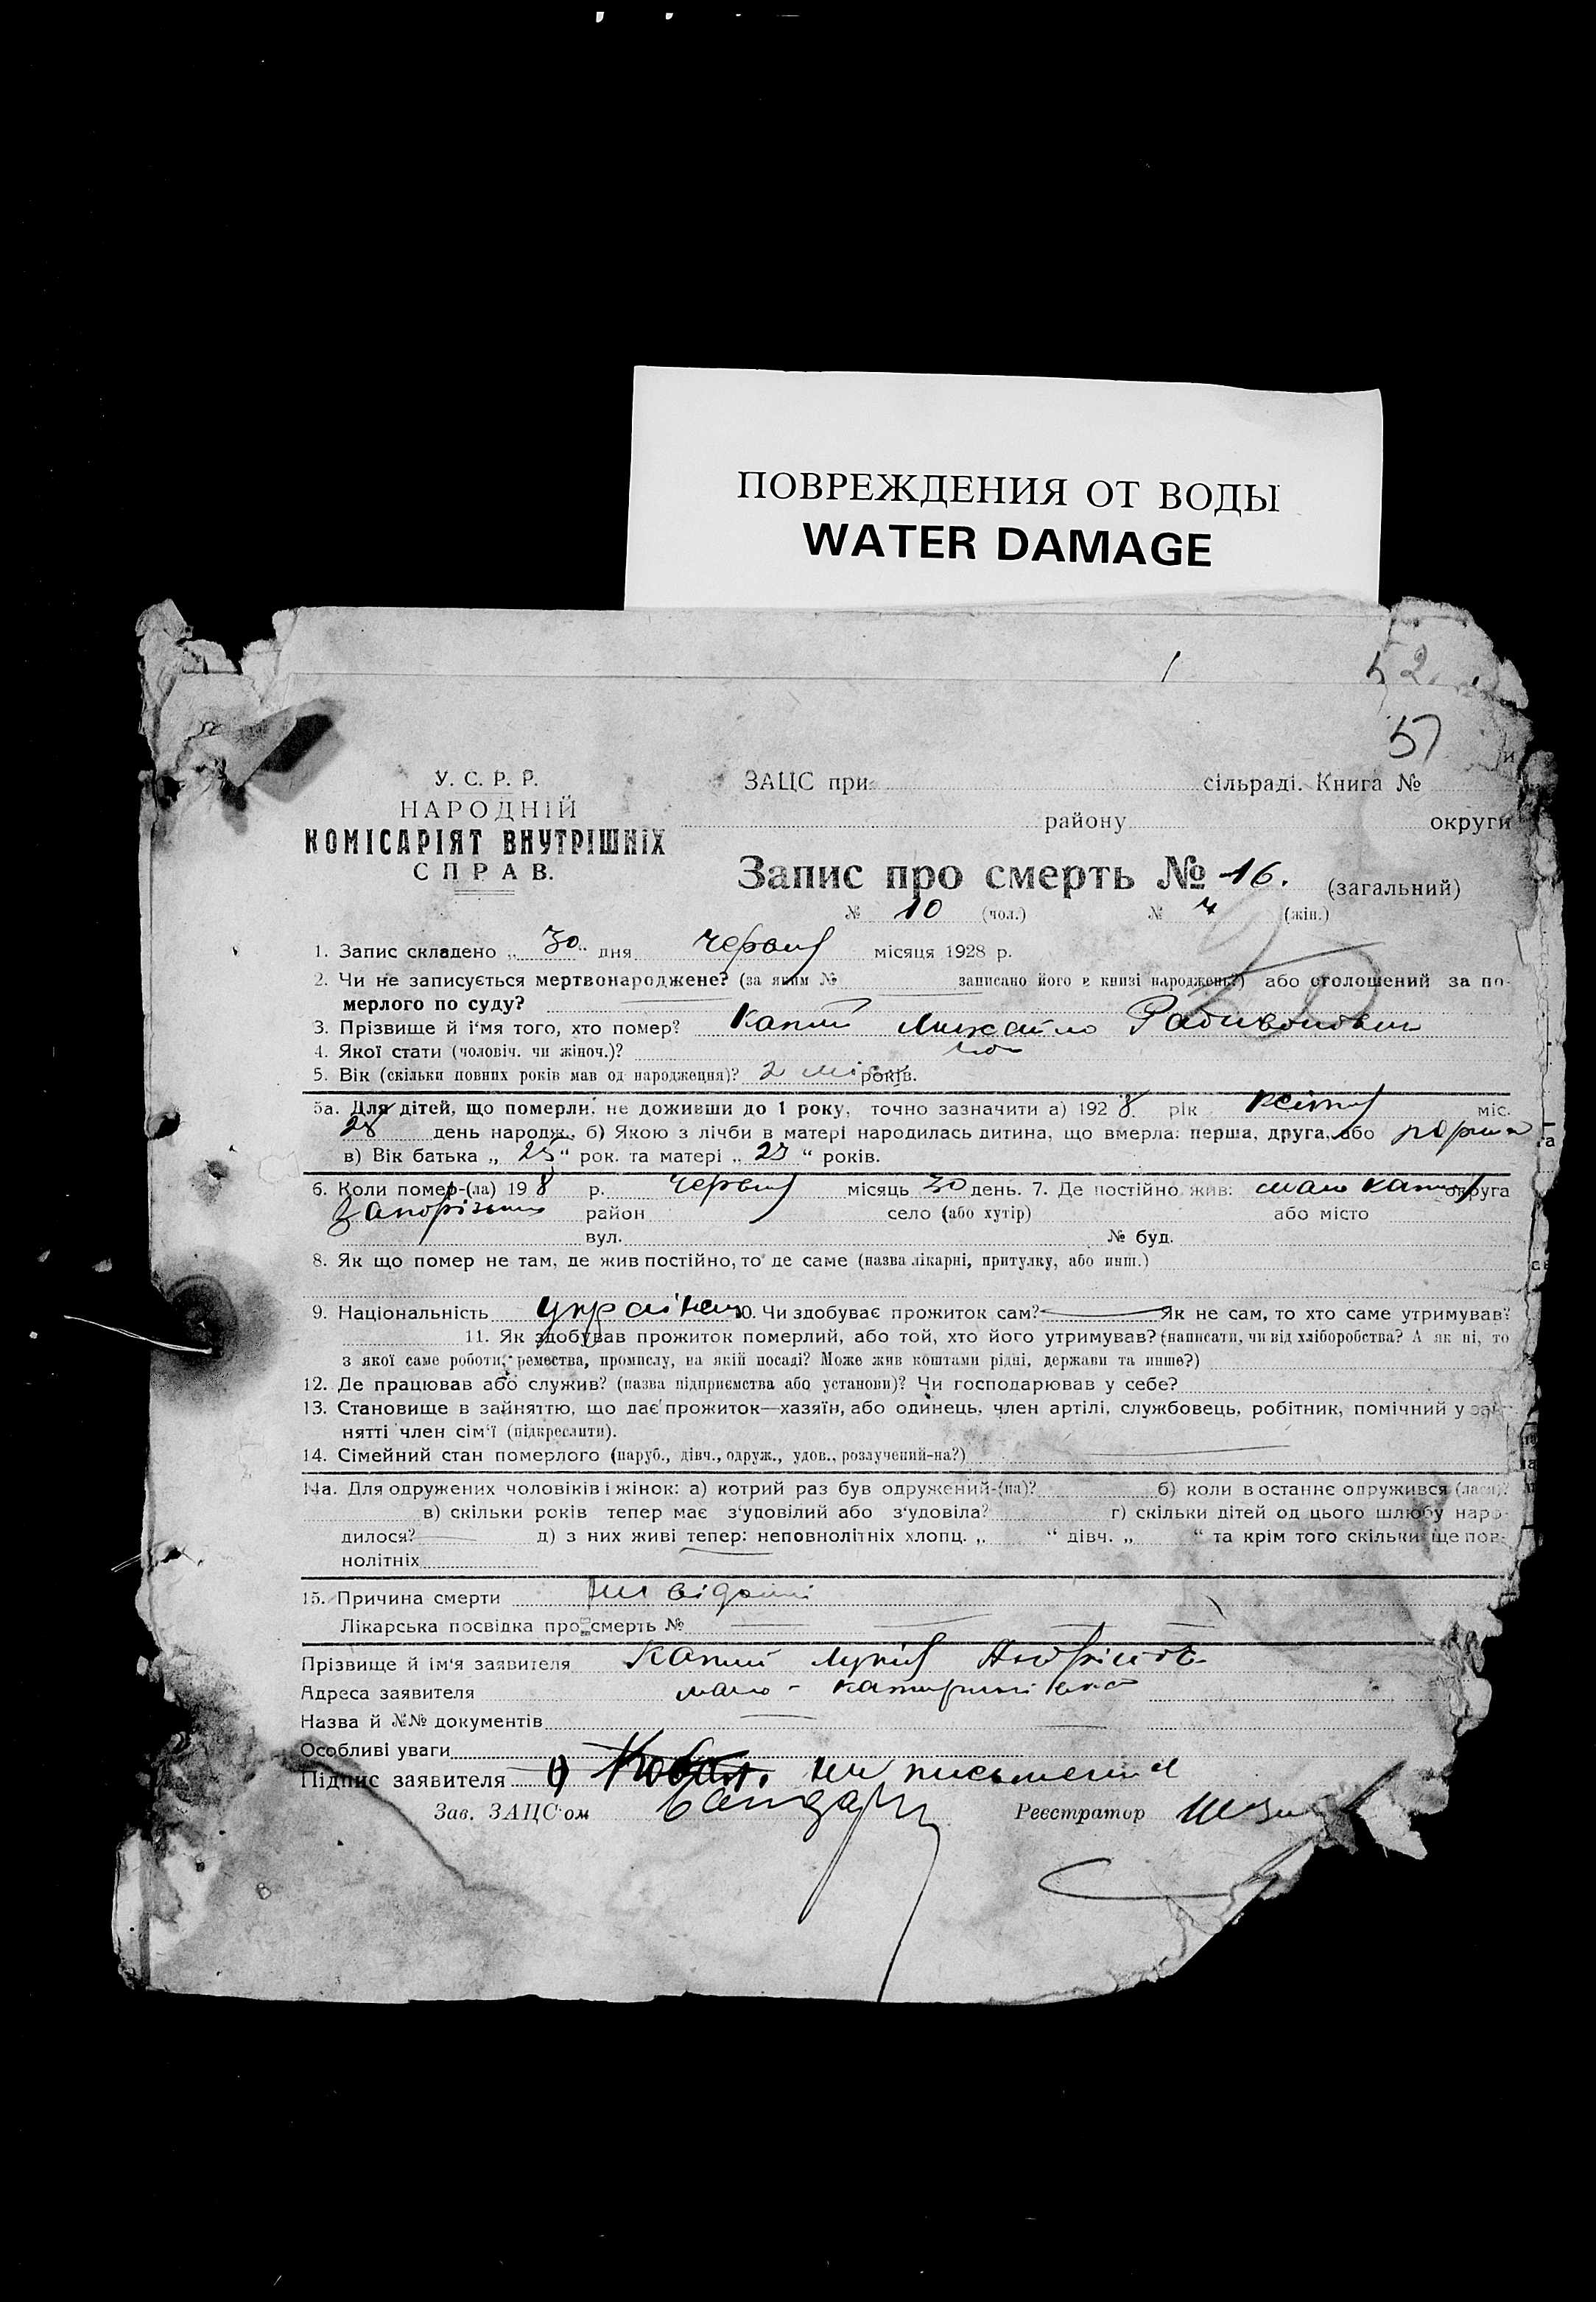 ПОВРЕЖДЕНИЯ ОТ ВОДЫ
WATER DAMAGE
52
57
У. С. Р. Р.
НАРОДНІЙ
КОМІСАРІЯТ ВНУТРІШНІХ
СПРАВ.
ЗАЦС при сільраді. Книга №
району округи
Запис про смерть № 16. (загальний)
№ 10 (чол.) № (жін.)
1. Запис складено „ 30 " дня червня місяця 1928 р.
2. Чи не записується мертвонароджене? (за яким № записано його в книзі народжень?) або оголошений за по-
мерлого по суду?
3. Прізвище й ім'я того, хто помер? Капий Михайло Радивонович
4. Якої стати (чоловіч. чи жіноч.)? чол
5. Вік (скільки повних років мав од народження)? 2 міс років.
5а. Для дітей, що померли, не доживши до 1 року, точно зазначити а) 1928 рік квітня міс.
28 день народж., б) Якою з лічби в матері народилась дитина, що вмерла: перша, друга, або
в) Вік батька „ 25 " рок. та матері „ 23 " років.
6. Коли помер-(ла) 19 8 р. червня місяць 30 день. 7. Де постійно жив: мало катер округа
Запорізький район село (або хутір) або місто
вул. № буд.
8. Як що помер не там, де жив постійно, то де саме (назва лікарні, притулку, або инш.)
9. Національність українец 10. Чи здобуває прожиток сам? Як не сам, то хто саме утримував?
11. Як здобував прожиток померлий, або той, хто його утримував? (написати, чи від хліборобства? А як ні, то
з якої саме роботи, ремества, промислу, на якій посаді? Може жив коштами рідні, держави та инше?)
12. Де працював або служив? (назва підприємства або установи)? Чи господарював у себе?
13. Становище в зайняттю, що дає прожиток—хазяїн, або одинець, член артілі, службовець, робітник, помічний у зай-
нятті член сім'ї (підкреслити).
14. Сімейний стан померлого (паруб., дівч., одруж., удов., розлучений-на?)
14а. Для одружених чоловіків і жінок: а) котрий раз був одружений-(на)? б) коли востаннє одружився (лася)?
в) скільки років тепер має з'удовілий або з'удовіла? г) скільки дітей од цього шлюбу наро-
дилося? д) з них живі тепер: неповнолітніх хлопц. „ " дівч. „ " та крім того скільки ще пов-
нолітніх
15. Причина смерти відомі
Лікарська посвідка про смерть №
Прізвище й ім'я заявителя Капий
Адреса заявителя мало - катеринівка
Назва й №№ документів
Особливі уваги
Підпис заявителя не письменна
Зав. ЗАЦС'ом Реєстратор